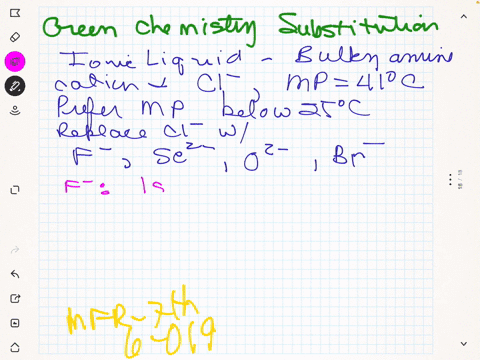 Green Chemistry Substitution
Ionic Liquid - Bulky amine
cation + Cl⁻, MP = 41°C
Prefer MP below 25°C
Replace Cl⁻ w/
F⁻, Se²⁻, O²⁻, Br⁻
F⁻: 1s
MFR - 7th
6-069